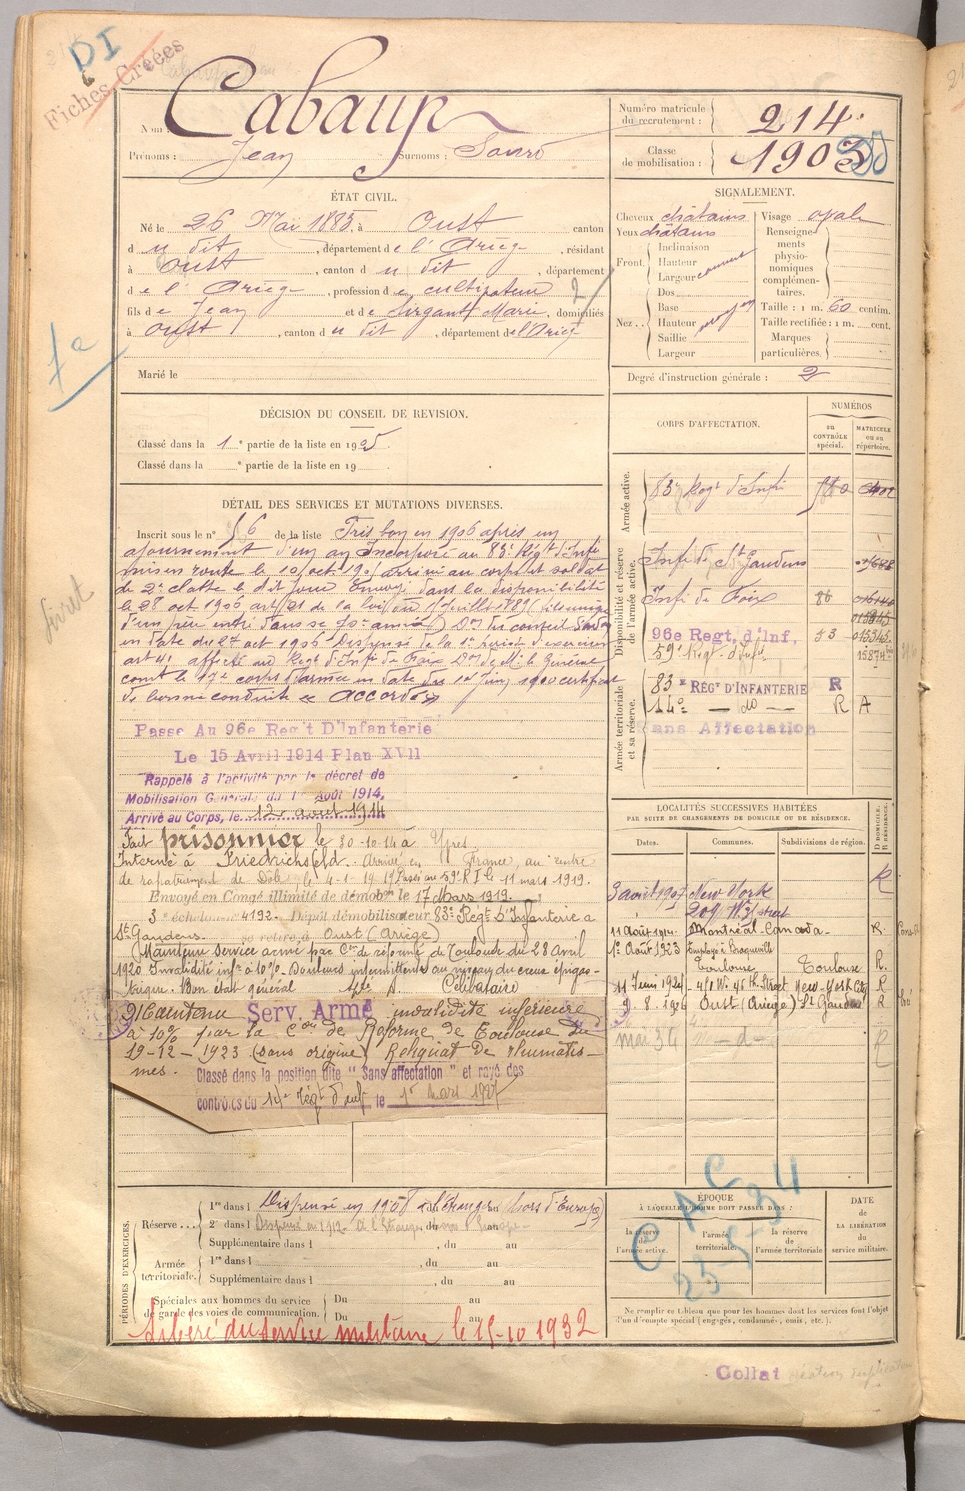 DI
Fiches Créées
Nom : Cabaup
Prénoms : Jean Surnoms :
Numéro matricule du recrutement : 214
Classe de mobilisation : 1903
ÉTAT CIVIL.
Né le 26 Mai 1883, à Oust canton
d u dit, département de l'Arieg , résidant
à Oust, canton d u dit, département
d e l'Arieg , profession de cultivateur
fils de Jean et de Sirgant Marie, domiciliés
à Oust, canton d u dit, département de l'Arieg
Marié le
DÉCISION DU CONSEIL DE REVISION.
Classé dans la 1e partie de la liste en 1905.
Classé dans la e partie de la liste en 19
SIGNALEMENT.
Cheveux châtains
Yeux châtains
Front. Inclinaison
Hauteur
Largeur
Nez. Dos
Base
Hauteur
Saillie
Largeur
Visage ovale
Renseignements physionomiques complémentaires.
Taille : 1 m. 60 centim.
Taille rectifiée : 1 m. cent.
Marques particulières.
Degré d'instruction générale : 2
DÉTAIL DES SERVICES ET MUTATIONS DIVERSES.
Inscrit sous le n° 56 de la liste Très bon en 1906 après un
ajournement d'un an Incorporé au 83e Régt d'Infie
mis en route le 10 oct. arrivé au corps et soldat
de 2e classe le dit jour Envoyé dans la disponibilité
le 28 oct 1906, art 21 de la loi du 15 Juillet 1889
en date du 27 oct 1906 Dispensé de la 1e période d'exercices
affecté au Régt d'Infie de Foix Don de M. le Général
comt le 17e corps d'armée en date du certificat
de bonne conduite « Accordé »
Passe Au 96e Regt D'Infanterie
Le 15 Avril 1914 Plan XVII
Rappelé à l'activité par le décret de
Mobilisation Generale du 1er Août 1914,
Arrivé au Corps, le 12 août 1914
Fait prisonnier le 30-10-14 à Ypres.
Interné à Friedrichsfeld. Arrivé en France, au centre
de rapatriement de Dôle le 4-1-1919 Passé au 59e R I le 11 mars 1919.
Envoyé en Congé illimité de démobon le 17 Mars 1919.
3e échelon n° 4192. Dépôt démobilisateur 83e Régt d'Infanterie à
St Gaudens. se retire à Oust (Ariège)
Maintenu service armé par Con de réforme de Toulouse du 28 Avril
1920. Invalidité infre à 10% - Douleurs intermittentes au niveau du creux épigas-
trique. Bon état général Célibataire
Maintenu Serv. Armé invalidité inférieure
à 10% par la Con de Réforme de Toulouse du
19-12-1923 (sans origine) Reliquat de rhumatis-
mes.
Classé dans la position dite "Sans affectation" et rayé des
contrôles du 14e Régt d'Inf le 1er Mars 1927
CORPS D'AFFECTATION.
NUMÉROS
au CONTRÔLE spécial.
MATRICULE ou au répertoire.
Armée active.
83e Regt d'Infie
Disponibilité et réserve de l'armée active.
Infie de St Gaudens
Infie de Foix 86
96e Regt. d'Inf. 53 015345
59e Régt d'Infie 15874
Armée territoriale et sa réserve.
83e RÉGt D'INFANTERIE R
14e — do — R A
Sans Affectation
LOCALITÉS SUCCESSIVES HABITÉES
PAR SUITE DE CHANGEMENTS DE DOMICILE OU DE RÉSIDENCE.
Dates. Communes. Subdivisions de région. D DOMICILE. R RÉSIDENCE.
3 août 1907 New York R
street
11 août 1912 Montréal-Canada - R.
1er Août 1923
Toulouse Toulouse R.
11 Juin 1924 W. 45th Street New-York City R
9. 8. 1926 Oust (Ariège) St Gaudens R
mai 34 — d — R
PÉRIODES D'EXERCICES.
Réserve 1re dans l Dispensé en 1908 à l'étranger (hors d'Europe)
2e dans l Dispensé en 1912 à l'étranger hors d'Europe
Supplémentaire dans l , du au
Armée territoriale. 1re dans l , du au
Supplémentaire dans l , du au
Spéciales aux hommes du service de garde des voies de communication. Du au
Du au
Libéré du service militaire le 15-10 1932
ÉPOQUE
À LAQUELLE L'HOMME DOIT PASSER DANS :
la réserve de l'armée active.
l'armée territoriale.
la réserve de l'armée territoriale
DATE DE LA LIBÉRATION du service militaire.
C A C
23-5-34
Ne remplir ce tableau que pour les hommes dont les services font l'objet
d'un décompte spécial (engagés, condamnés, omis, etc.).
Collat